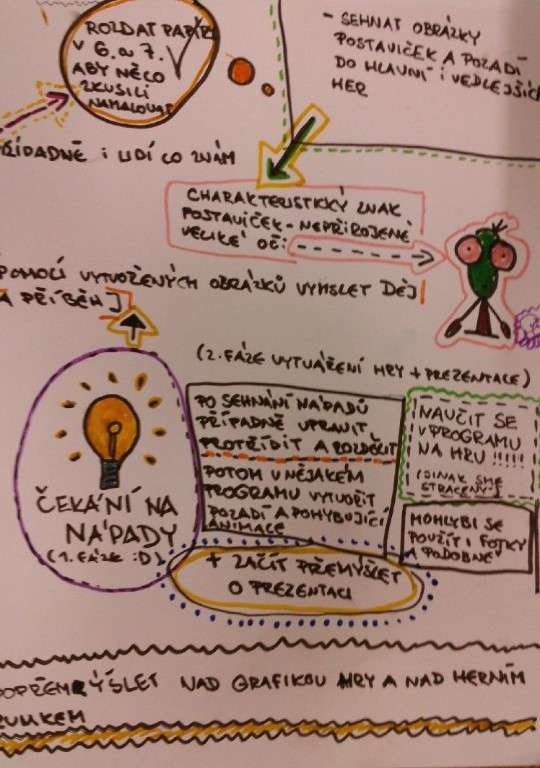 ROZDAT PAPÍRY
V 6. A 7.
ABY NĚCO
ZKUSILI
NAMALOVAT
- SEHNAT OBRÁZKY
POSTAVIČEK A POZADÍ
DO HLAVNÍ I VEDLEJŠÍCH
HER
PŘÍPADNĚ I LIDÍ CO ZNÁM
CHARAKTERISTICKÝ ZNAK
POSTAVIČEK - NEPŘIROZENĚ
VELIKÉ OČI
POMOCÍ VYTVOŘENÝCH OBRÁZKŮ VYMYSLET DĚJ
A PŘÍBĚH
(2. FÁZE VYTVÁŘENÍ HRY + PREZENTACE)
ČEKÁNÍ NA
NÁPADY
(1. FÁZE :D)
PO SEHNÁNÍ NÁPADŮ
PŘÍPADNĚ UPRAVIT
PROTŘÍDIT A ROZDĚLIT
POTOM V NĚJAKÉM
PROGRAMU VYTVOŘIT
POZADÍ A POHYBUJÍCÍ
ANIMACE
NAUČIT SE
V PROGRAMU
NA HRU !!!!!
(JINAK SME
ZTRACENÝ)
MOHLY BI SE
POUŽÍT I FOTKY
A PODOBNĚ
+ ZAČÍT PŘEMÝŠLET
O PREZENTACI
POPŘEMÝŠLET NAD GRAFIKOU HRY A NAD HERNÍM